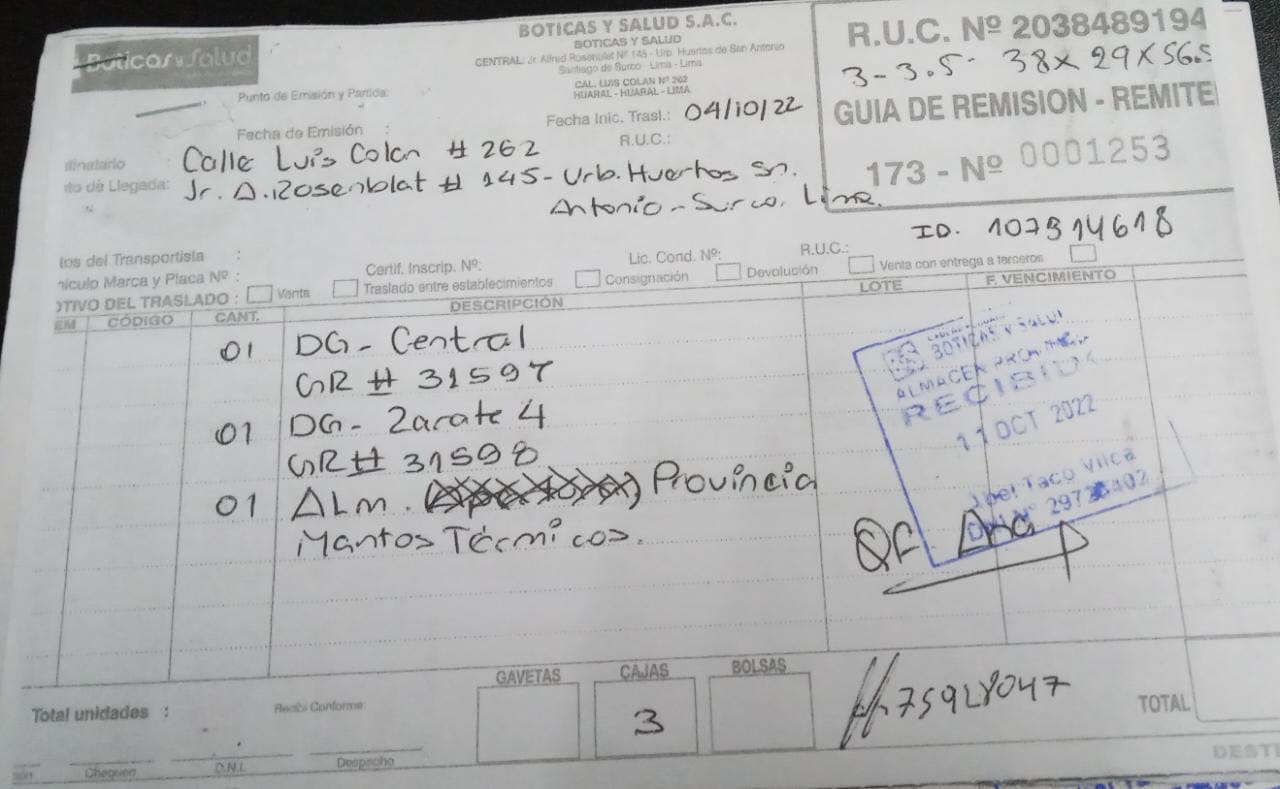 Boticas y Salud
BOTICAS Y SALUD S.A.C.
BOTICAS Y SALUD
CENTRAL: Jr. Alfred Rosenblat Nº 145 - Urb. Huertos de San Antonio
Santiago de Surco - Lima - Lima
CAL. LUIS COLAN Nº 262
HUARAL - HUARAL - LIMA
R.U.C. Nº 2038489194
3-3.5- 38x29x56.5
GUIA DE REMISION - REMITE
173 - Nº 0001253
Punto de Emisión y Partida:
Fecha de Emisión :
Fecha Inic. Trasl.: 04/10/22
R.U.C.:
tinatario Calle Luis Colan # 262
nto de Llegada: Jr. A. Rosenblat # 145- Urb. Huertos Sn.
Antonio - Surco. Lima.
ID. 107914618
tos del Transportista :
hículo Marca y Placa Nº :
Certif. Inscrip. Nº:
Lic. Cond. Nº:
R.U.C.:
OTIVO DEL TRASLADO : Venta Traslado entre establecimientos Consignación Devolución Venta con entrega a terceros
EM CÓDIGO CANT. DESCRIPCIÓN LOTE F. VENCIMIENTO
01 DG- Central
GR # 31597
01 DG- Zarate 4
GR # 31598
01 ALM. Provincia
Mantos Técnicos.
BOTICAS Y SALUD
ALMACEN
RECIBIDO
11 OCT 2022
Joel Taco Vilca
DNI Nº
QF. Ana
GAVETAS CAJAS BOLSAS
3
75928047
Total unidades :
Recibi Conforme:
TOTAL
Chequeo D.N.I. Despacho
DESTI